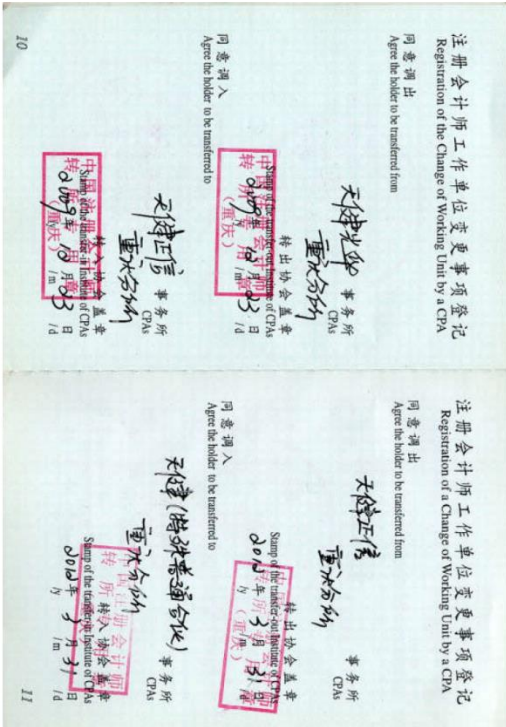 注册会计师工作单位变更事项登记
Registration of the Change of Working Unit by a CPA
同意调出
Agree the holder to be transferred from
天健光华
重庆分所
事务所
CPAs
转出协会盖章
Stamp of the transfer-out Institute of CPAs
中国注册会计师
转所专用章
(重庆)
2009年12月23日
/y /m /d
同意调入
Agree the holder to be transferred to
天健正信
重庆分所
事务所
CPAs
转入协会盖章
Stamp of the transfer-in Institute of CPAs
中国注册会计师
转所专用章
(重庆)
2009年12月23日
/y /m /d
10
注册会计师工作单位变更事项登记
Registration of a Change of Working Unit by a CPA
同意调出
Agree the holder to be transferred from
天健正信
重庆分所
事务所
CPAs
转出协会盖章
Stamp of the transfer-out Institute of CPAs
(重庆)
2012年3月31日
/y /m /d
同意调入
Agree the holder to be transferred to
天健(特殊普通合伙)
重庆分所
事务所
CPAs
转入协会盖章
Stamp of the transfer-in Institute of CPAs
2012年3月31日
/y /m /d
11